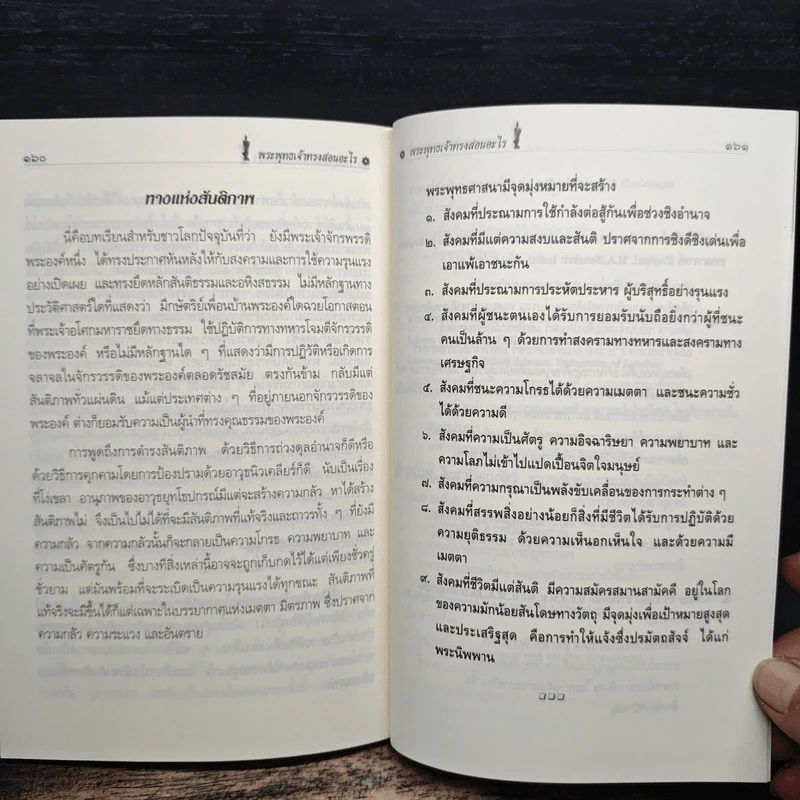 ๑๖๐
พระพุทธเจ้าทรงสอนอะไร
ทางแห่งสันติภาพ
นี่คือบทเรียนสำหรับชาวโลกปัจจุบันที่ว่า ยังมีพระเจ้าจักรพรรดิ
พระองค์หนึ่ง ได้ทรงประกาศหันหลังให้กับสงครามและการใช้ความรุนแรง
อย่างเปิดเผย และทรงยึดหลักสันติธรรมและอหิงสธรรม ไม่มีหลักฐานทาง
ประวัติศาสตร์ใดที่แสดงว่า มีกษัตริย์เพื่อนบ้านพระองค์ใดฉวยโอกาสตอน
ที่พระเจ้าอโศกมหาราชยึดทางธรรม ใช้ปฏิบัติการทางทหารโจมตีจักรวรรดิ
ของพระองค์ หรือไม่มีหลักฐานใด ๆ ที่แสดงว่ามีการปฏิวัติหรือเกิดการ
จลาจลในจักรวรรดิของพระองค์ตลอดรัชสมัย ตรงกันข้าม กลับมีแต่
สันติภาพทั่วแผ่นดิน แม้แต่ประเทศต่าง ๆ ที่อยู่ภายนอกจักรวรรดิของ
พระองค์ ต่างก็ยอมรับความเป็นผู้นำที่ทรงคุณธรรมของพระองค์
การพูดถึงการดำรงสันติภาพ ด้วยวิธีการถ่วงดุลอำนาจก็ดีหรือ
ด้วยวิธีการคุกคามโดยการป้องปรามด้วยอาวุธนิวเคลียร์ก็ดี นับเป็นเรื่อง
ที่โง่เขลา อานุภาพของอาวุธยุทโธปกรณ์มีแต่จะสร้างความกลัว หาได้สร้าง
สันติภาพไม่ จึงเป็นไปไม่ได้ที่จะมีสันติภาพที่แท้จริงและถาวรทั้ง ๆ ที่ยังมี
ความกลัว จากความกลัวนั้นก็จะกลายเป็นความโกรธ ความพยาบาท และ
ความเป็นศัตรูกัน ซึ่งบางทีสิ่งเหล่านี้อาจจะถูกเก็บกดไว้ได้แต่เพียงชั่วครู่
ชั่วยาม แต่มันพร้อมที่จะระเบิดเป็นความรุนแรงได้ทุกขณะ สันติภาพที่
แท้จริงจะมีขึ้นได้ก็แต่เฉพาะในบรรยากาศแห่งเมตตา มิตรภาพ ซึ่งปราศจาก
ความกลัว ความระแวง และอันตราย
พระพุทธเจ้าทรงสอนอะไร
๑๖๑
พระพุทธศาสนามีจุดมุ่งหมายที่จะสร้าง
๑. สังคมที่ประณามการใช้กำลังต่อสู้กันเพื่อช่วงชิงอำนาจ
๒. สังคมที่มีแต่ความสงบและสันติ ปราศจากการชิงดีชิงเด่นเพื่อ
เอาแพ้เอาชนะกัน
๓. สังคมที่ประณามการประหัตประหาร ผู้บริสุทธิ์อย่างรุนแรง
๔. สังคมที่ผู้ชนะตนเองได้รับการยอมรับนับถือยิ่งกว่าผู้ที่ชนะ
คนเป็นล้าน ๆ ด้วยการทำสงครามทางทหารและสงครามทาง
เศรษฐกิจ
๕. สังคมที่ชนะความโกรธได้ด้วยความเมตตา และชนะความชั่ว
ได้ด้วยความดี
๖. สังคมที่ความเป็นศัตรู ความอิจฉาริษยา ความพยาบาท และ
ความโลภไม่เข้าไปแปดเปื้อนจิตใจมนุษย์
๗. สังคมที่ความกรุณาเป็นพลังขับเคลื่อนของการกระทำต่าง ๆ
๘. สังคมที่สรรพสิ่งอย่างน้อยก็สิ่งที่มีชีวิตได้รับการปฏิบัติด้วย
ความยุติธรรม ด้วยความเห็นอกเห็นใจ และด้วยความมี
เมตตา
๙. สังคมที่ชีวิตมีแต่สันติ มีความสมัครสมานสามัคคี อยู่ในโลก
ของความมักน้อยสันโดษทางวัตถุ มีจุดมุ่งเพื่อเป้าหมายสูงสุด
และประเสริฐสุด คือการทำให้แจ้งซึ่งปรมัตถสัจจ์ ได้แก่
พระนิพพาน